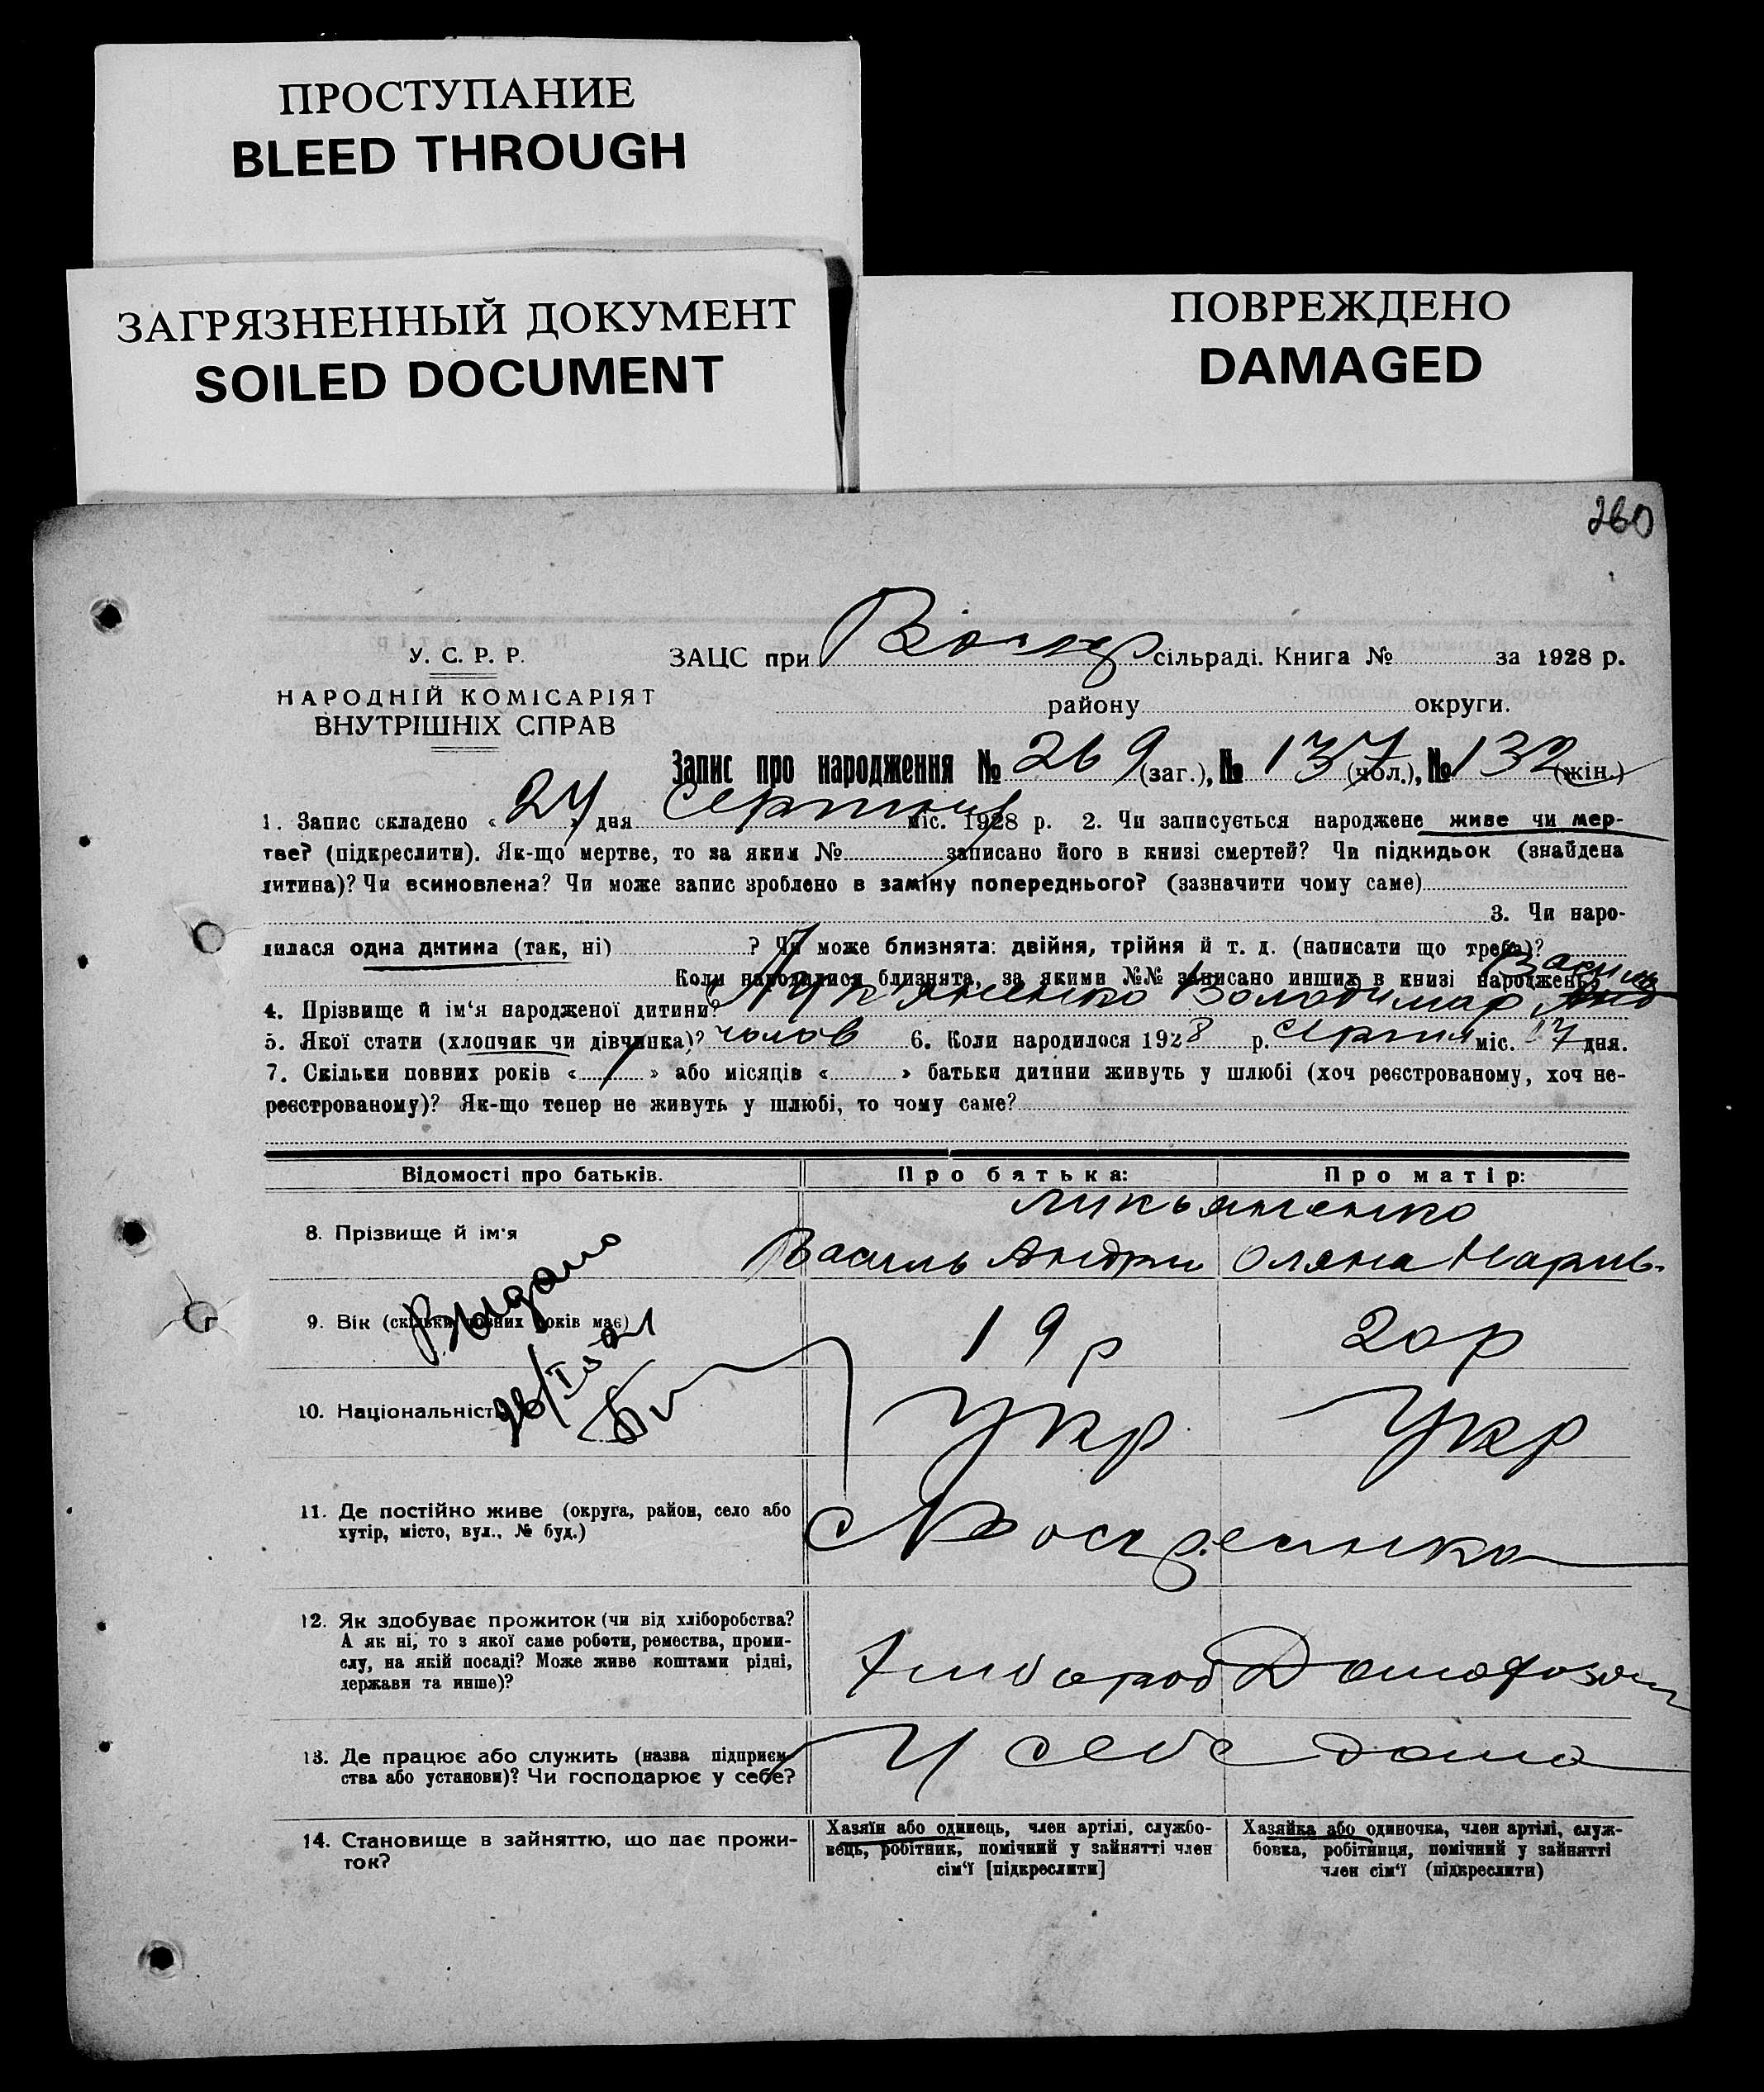 ПРОСТУПАНИЕ
BLEED THROUGH
ЗАГРЯЗНЕННЫЙ ДОКУМЕНТ
SOILED DOCUMENT
ПОВРЕЖДЕНО
DAMAGED
260
У. С. Р. Р.
НАРОДНІЙ КОМІСАРІЯТ
ВНУТРІШНІХ СПРАВ
ЗАЦС при Воскр сільраді. Книга № за 1928 р.
району округи.
Запис про народження № 269 (заг.), № 137 (чол.), № 132 (жін.)
1. Запис складено « 24 » дня Серпня міс. 1928 р. 2. Чи записується народжене живе чи мер-
тве? (підкреслити). Як-що мертве, то за яким № записано його в книзі смертей? Чи підкидьок (знайдена
дитина)? Чи всиновлена? Чи може запис зроблено в заміну попереднього? (зазначити чому саме)
3. Чи наро-
дилася одна дитина (так, ні) ? Чи може близнята: двійня, трійня й т. д. (написати що треба)?
Коли народилися близнята, за якими №№ записано инших в книзі народжень?
Василь
4. Прізвище й ім'я народженої дитини? Лук'яненко Володимир
5. Якої стати (хлопчик чи дівчинка)? чолов 6. Коли народилося 1928 р. Серпня міс. 17 дня.
7. Скільки повних років « 1 » або місяців « » батьки дитини живуть у шлюбі (хоч реєстрованому, хоч не-
реєстрованому)? Як-що тепер не живуть у шлюбі, то чому саме?
Відомості про батьків. Про батька: Про матір:
Лукьяненко
8. Прізвище й ім'я Василь Андри Оляна Марків.
Выдано
9. Вік (скільки повних років має) 19 р 20 р
10. Національність Укр. Укр
11. Де постійно живе (округа, район, село або
хутір, місто, вул., № буд.)
с Воскресенка
12. Як здобуває прожиток (чи від хліборобства?
А як ні, то з якої саме роботи, ремества, проми-
слу, на якій посаді? Може живе коштами рідні,
держави та инше)?
Хлібороб Домогозяй
13. Де працює або служить (назва підприєм-
ства або установи)? Чи господарює у себе?
У себе дома
14. Становище в зайняттю, що дає прожи-
ток?
Хазяїн або одинець, член артілі, службо-
вець, робітник, помічний у зайнятті член
сім'ї [підкреслити]
Хазяйка або одиночка, член артілі, служ-
бовка, робітниця, помічний у зайнятті
член сім'ї (підкреслити)